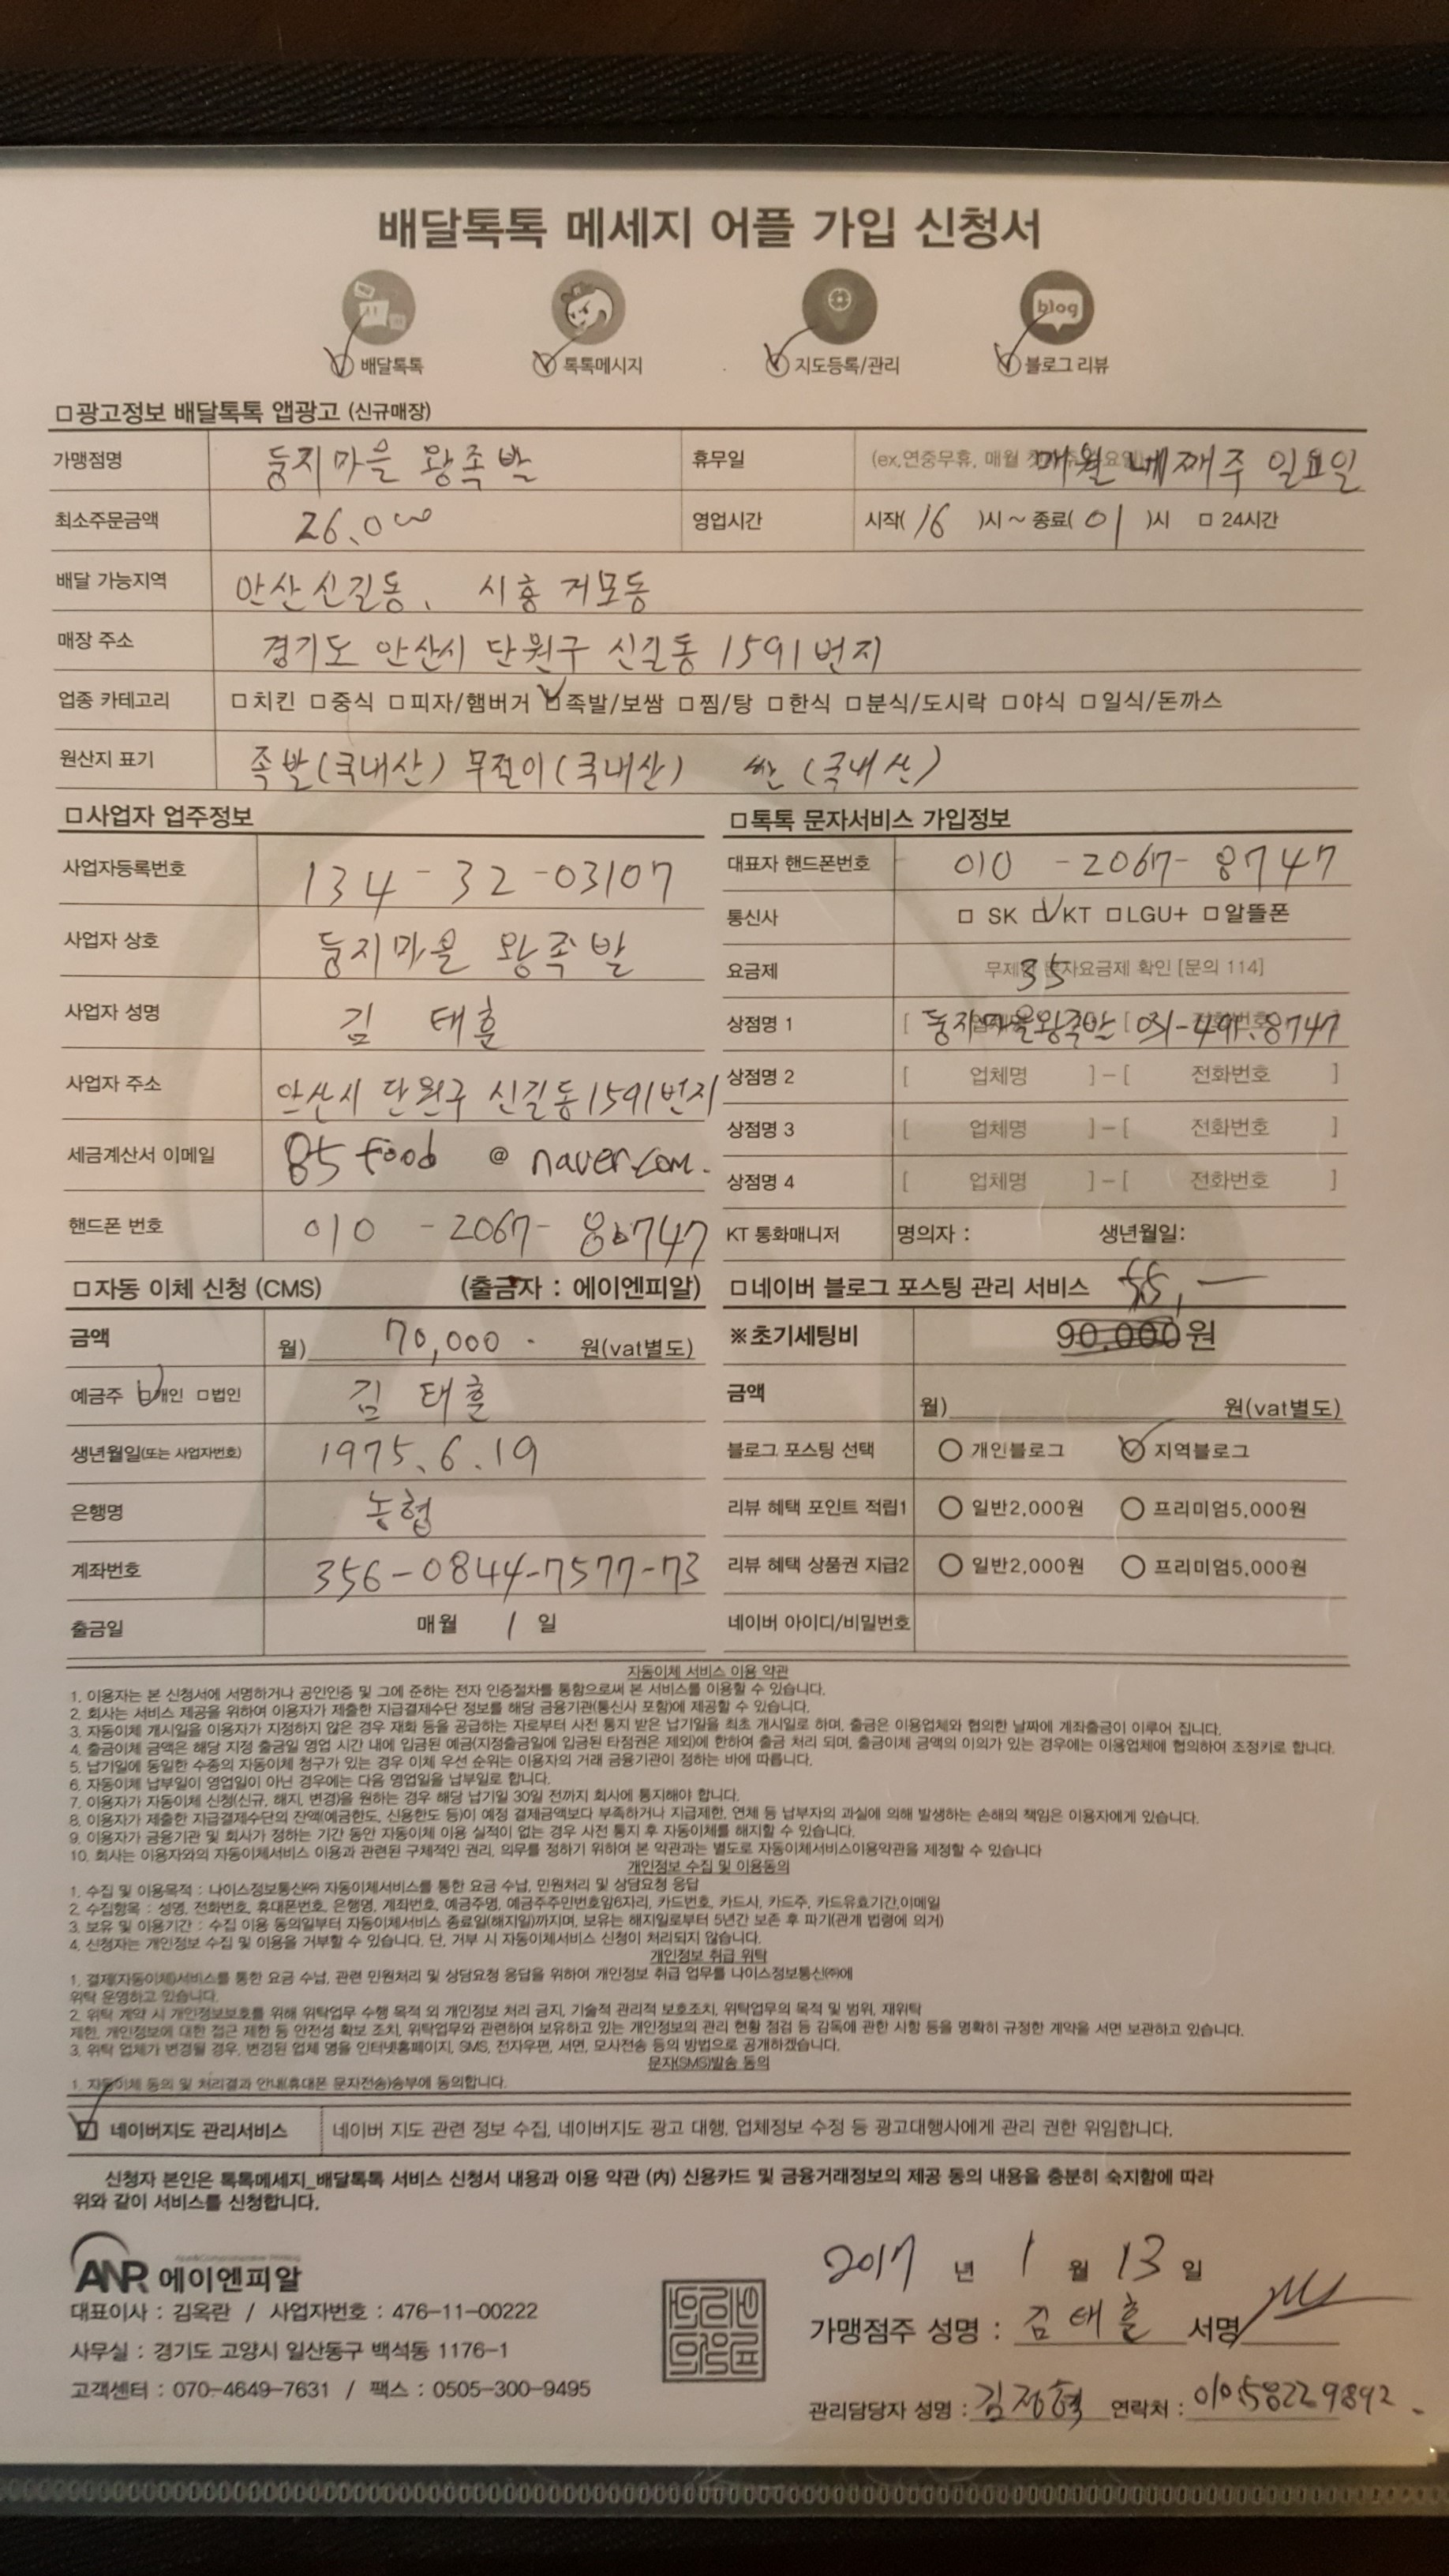 배달톡톡 메세지 어플 가입 신청서
blog
배달톡톡 톡톡메시지 지도등록/관리 블로그 리뷰
□광고정보 배달톡톡 앱광고 (신규매장)
가맹점명 둥지마을 왕족발 휴무일 (ex.연중무휴, 매월 매월 네째주 일요일
최소주문금액 26,000 영업시간 시작( 16 )시 ~ 종료( 01 )시 □ 24시간
배달 가능지역 안산신길동, 시흥 거모동
매장 주소 경기도 안산시 단원구 신길동 1591번지
업종 카테고리 □치킨 □중식 □피자/햄버거 □족발/보쌈 □찜/탕 □한식 □분식/도시락 □야식 □일식/돈까스
원산지 표기 족발(국내산) 무절이(국내산) 쌀(국내산)
□사업자 업주정보
사업자등록번호 134-32-03107
사업자 상호 둥지마을 왕족발
사업자 성명 김 태훈
사업자 주소 안산시 단원구 신길동1591번지
세금계산서 이메일 85food @ naver.com.
핸드폰 번호 010 - 2067-
□톡톡 문자서비스 가입정보
대표자 핸드폰번호 010 - 2067- 8747
통신사 □ SK □KT □LGU+ □알뜰폰
요금제 35 문자요금제 확인 [문의 114]
상점명 1 [ 둥지마을왕족발 [ 031-491-8747
상점명 2 [ 업체명 ]-[ 전화번호 ]
상점명 3 [ 업체명 ]-[ 전화번호 ]
상점명 4 [ 업체명 ]-[ 전화번호 ]
KT 통화매니저 명의자 : 생년월일:
□자동 이체 신청 (CMS) (출금자 : 에이엔피알)
금액 월) 70,000 원(vat별도)
예금주 □개인 □법인 김 태훈
생년월일(또는 사업자번호) 1975.6.19
은행명 농협
계좌번호 356-0844-7577-73
출금일 매월 1 일
□네이버 블로그 포스팅 관리 서비스 55,—
※초기세팅비 90,000원
금액 월) 원(vat별도)
블로그 포스팅 선택 개인블로그 지역블로그
리뷰 혜택 포인트 적립1 일반2,000원 프리미엄5,000원
리뷰 혜택 상품권 지급2 일반2,000원 프리미엄5,000원
네이버 아이디/비밀번호
자동이체 서비스 이용 약관
1. 이용자는 본 신청서에 서명하거나 공인인증 및 그에 준하는 전자 인증절차를 통함으로써 본 서비스를 이용할 수 있습니다.
2. 회사는 서비스 제공을 위하여 이용자가 제출한 지급결제수단 정보를 해당 금융기관(통신사 포함)에 제공할 수 있습니다.
3. 자동이체 개시일을 이용자가 지정하지 않은 경우 재화 등을 공급하는 자로부터 사전 통지 받은 납기일을 최초 개시일로 하며, 출금은 이용업체와 협의한 날짜에 계좌출금이 이루어 집니다.
4. 출금이체 금액은 해당 지정 출금일 영업 시간 내에 입금된 예금(지정출금일에 입금된 타점권은 제외)에 한하여 출금 처리 되며, 출금이체 금액의 이의가 있는 경우에는 이용업체에 협의하여 조정키로 합니다.
5. 납기일에 동일한 수종의 자동이체 청구가 있는 경우 이체 우선 순위는 이용자의 거래 금융기관이 정하는 바에 따릅니다.
6. 자동이체 납부일이 영업일이 아닌 경우에는 다음 영업일을 납부일로 합니다.
7. 이용자가 자동이체 신청(신규, 해지, 변경)을 원하는 경우 해당 납기일 30일 전까지 회사에 통지해야 합니다.
8. 이용자가 제출한 지급결제수단의 잔액(예금한도, 신용한도 등)이 예정 결제금액보다 부족하거나 지급제한, 연체 등 납부자의 과실에 의해 발생하는 손해의 책임은 이용자에게 있습니다.
9. 이용자가 금융기관 및 회사가 정하는 기간 동안 자동이체 이용 실적이 없는 경우 사전 통지 후 자동이체를 해지할 수 있습니다.
10. 회사는 이용자와의 자동이체서비스 이용과 관련된 구체적인 권리, 의무를 정하기 위하여 본 약관과는 별도로 자동이체서비스이용약관을 제정할 수 있습니다
개인정보 수집 및 이용동의
1. 수집 및 이용목적 : 나이스정보통신㈜ 자동이체서비스를 통한 요금 수납, 민원처리 및 상담요청 응답
2. 수집항목 : 성명, 전화번호, 휴대폰번호, 은행명, 계좌번호, 예금주명, 예금주주민번호앞6자리, 카드번호, 카드사, 카드주, 카드유효기간,이메일
3. 보유 및 이용기간 : 수집 이용 동의일부터 자동이체서비스 종료일(해지일)까지며, 보유는 해지일로부터 5년간 보존 후 파기(관계 법령에 의거)
4. 신청자는 개인정보 수집 및 이용을 거부할 수 있습니다. 단, 거부 시 자동이체서비스 신청이 처리되지 않습니다.
개인정보 취급 위탁
1. 결제(자동이체)서비스를 통한 요금 수납, 관련 민원처리 및 상담요청 응답을 위하여 개인정보 취급 업무를 나이스정보통신㈜에
위탁 운영하고 있습니다.
2. 위탁 계약 시 개인정보보호를 위해 위탁업무 수행 목적 외 개인정보 처리 금지, 기술적 관리적 보호조치, 위탁업무의 목적 및 범위, 재위탁
제한, 개인정보에 대한 접근 제한 등 안전성 확보 조치, 위탁업무와 관련하여 보유하고 있는 개인정보의 관리 현황 점검 등 감독에 관한 사항 등을 명확히 규정한 계약을 서면 보관하고 있습니다.
3. 위탁 업체가 변경될 경우, 변경된 업체 명을 인터넷홈페이지, SMS, 전자우편, 서면, 모사전송 등의 방법으로 공개하겠습니다.
문자(SMS)발송 동의
1. 자동이체 동의 및 처리결과 안내(휴대폰 문자전송)송부에 동의합니다.
네이버지도 관리서비스 네이버 지도 관련 정보 수집, 네이버지도 광고 대행, 업체정보 수정 등 광고대행사에게 관리 권한 위임합니다.
신청자 본인은 톡톡메세지_배달톡톡 서비스 신청서 내용과 이용 약관 (內) 신용카드 및 금융거래정보의 제공 동의 내용을 충분히 숙지함에 따라
위와 같이 서비스를 신청합니다.
ANR 에이엔피알
대표이사 : 김옥란 / 사업자번호 : 476-11-00222
사무실 : 경기도 고양시 일산동구 백석동 1176-1
고객센터 : 070-4649-7631 / 팩스 : 0505-300-9495
2017 년 1 월 13 일
가맹점주 성명 : 김태훈 서명
관리담당자 성명 : 김정혁 연락처 : 01058229892